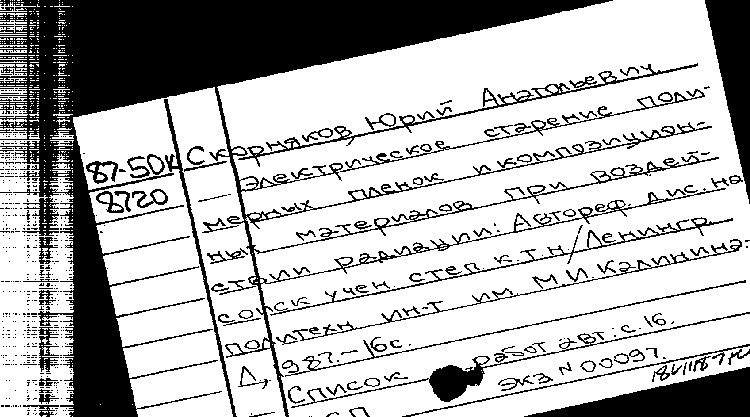 87-50к
8720
Скорняков, Юрий Анатольевич.
Электрическое старение поли-
мерных пленок и композицион-
ных материалов при воздей-
ствии радиации: Автореф. дис. на
соиск учен степ к.т.н/Ленингр
политехн ин-т им М.И Калинина-
Л, 1987.-16с.
Список работ авт: с.16.
Экз N 00097.